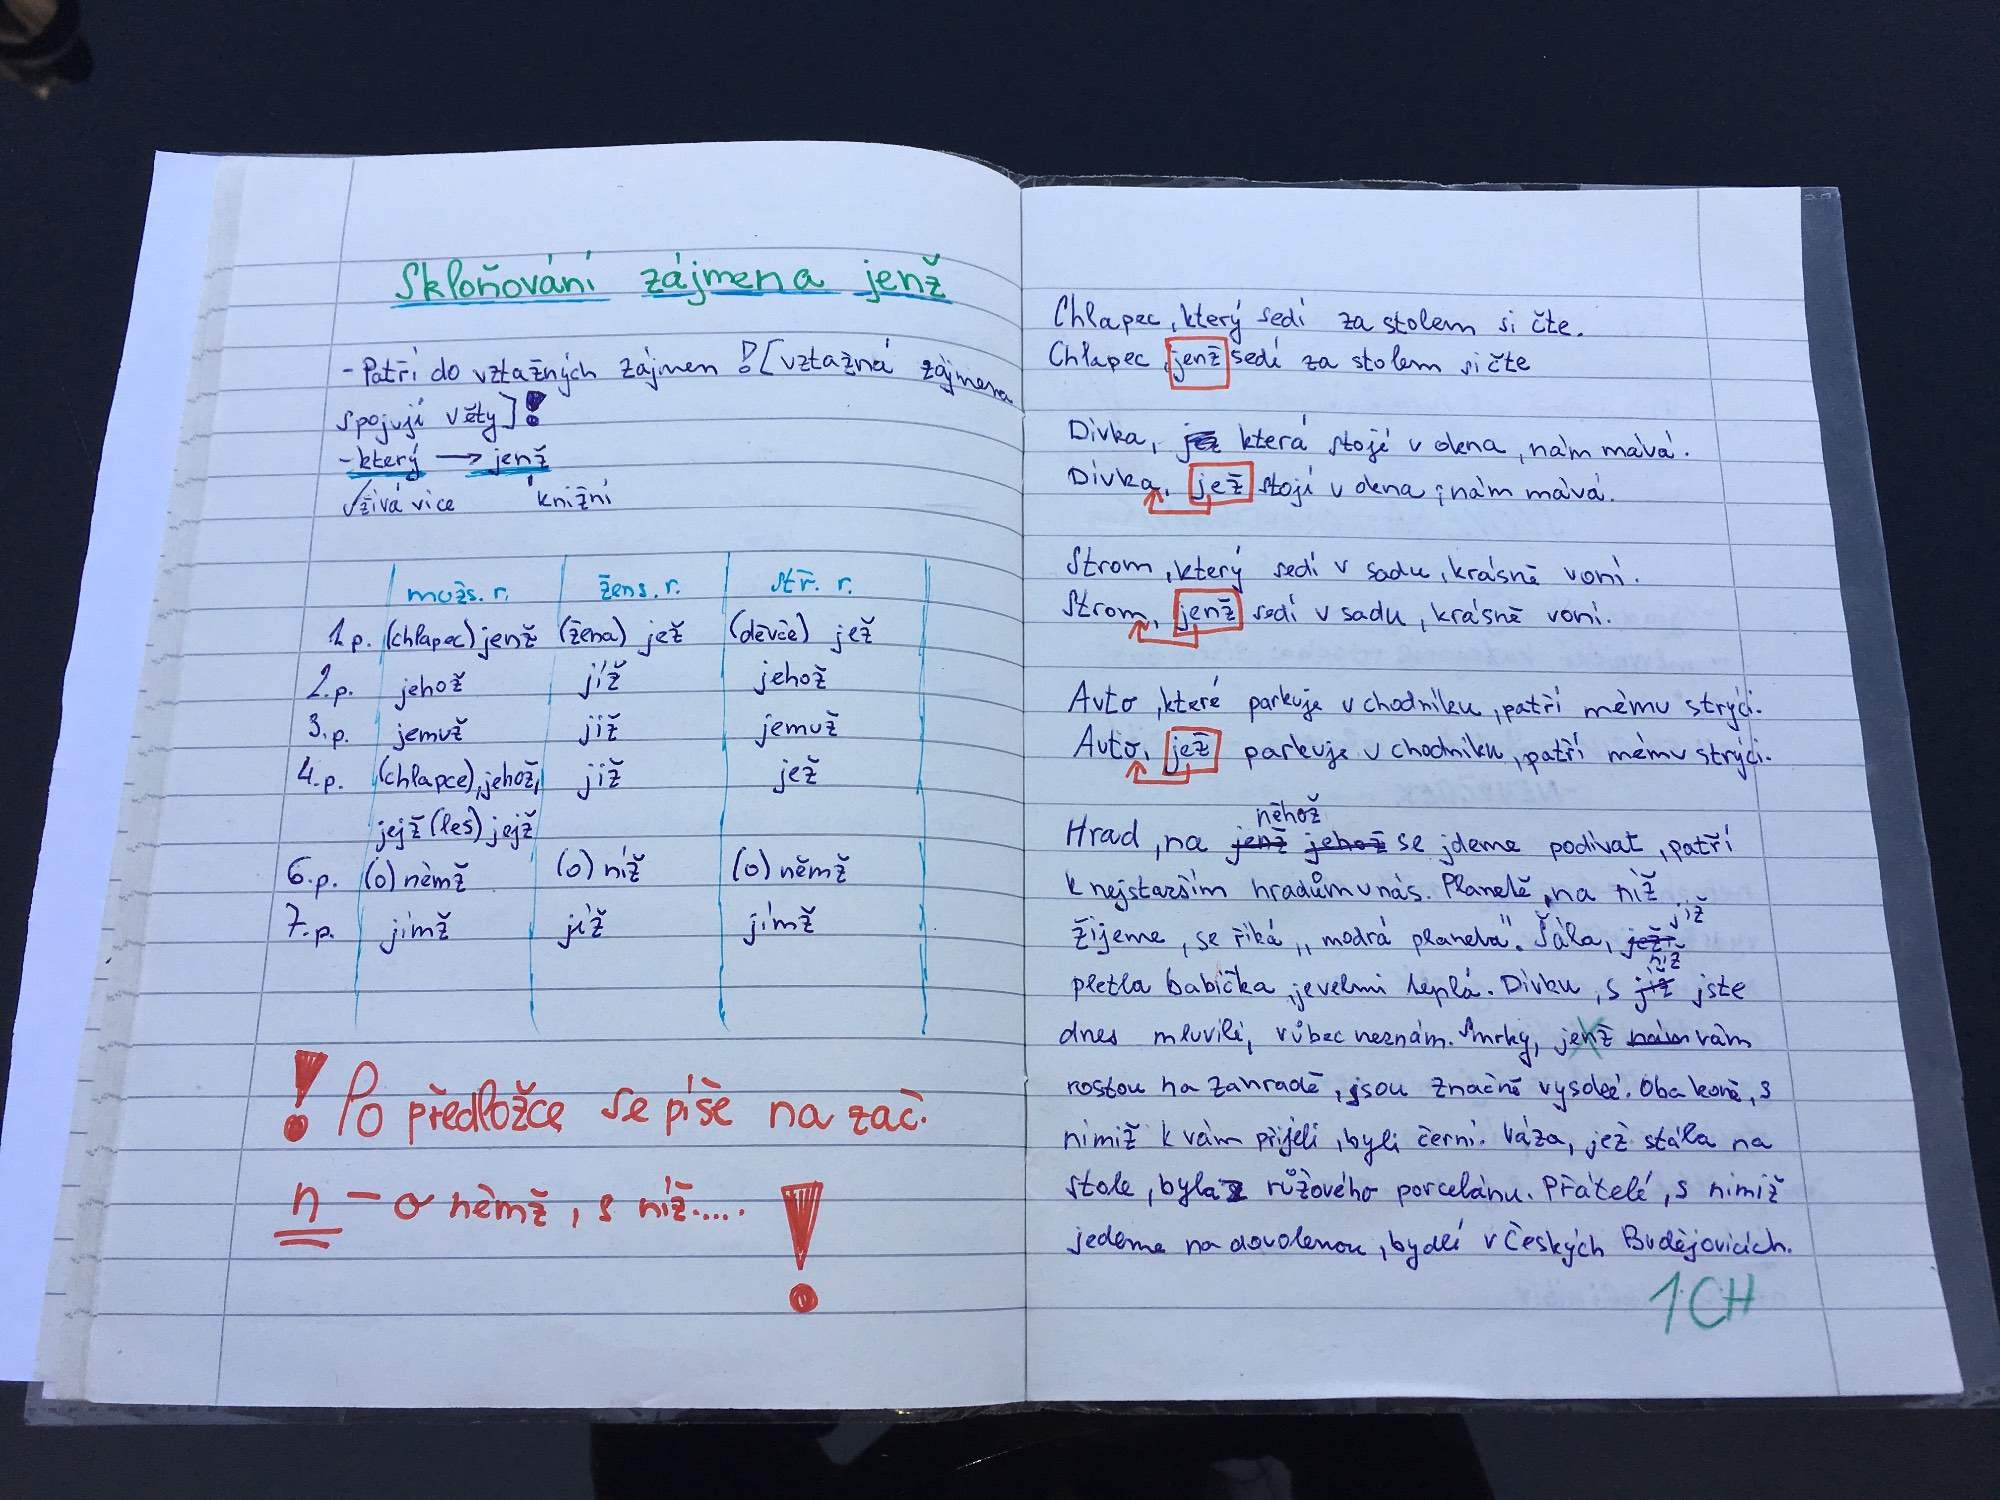 Skloňování zájmena jenž
- Patří do vztažných zájmen ! [vztažná zájmena
spojují věty] !
- který → jenž
Užívá více knižní
mužs. r. žens. r. stř. r.
1.p. (chlapec) jenž (žena) jež (děvče) jež
2.p. jehož jíž jehož
3.p. jemuž jíž jemuž
4.p. (chlapce), jehož, již jež
jejž (les) jejž
6.p. (o) němž (o) níž (o) němž
7.p. jímž jíž jímž
! Po předložce se píše na zač.
n - o němž, s níž..... !
Chlapec, který sedí za stolem si čte.
Chlapec, jenž sedí za stolem si čte
Dívka, jež která stojé v okna, nám mává.
Dívka, jež stojí v okna, nám mává.
Strom, který sedí v sadu, krásně voní.
Strom, jenž sedí v sadu, krásně voní.
Auto, které parkuje v chodníku, patří mému strýci.
Auto, jež parkuje v chodníku, patří mému strýci.
něhož
Hrad, na jenž jehož se jdeme podívat, patří
k nejstarším hradům u nás. Planetě, na níž
již
žijeme, se říká „modrá planeta". Šála, jež
níž
pletla babička, je velmi teplá. Dívku, s jíž jste
dnes mluvili, vůbec neznám. Smrky, jenž nám vám
rostou na zahradě, jsou značně vysoké. Oba koně, s
nimiž k vám přijeli, byli černí. Váza, jež stála na
stole, byla z růžového porcelánu. Přátelé, s nimiž
jedeme na dovolenou, bydlí v Českých Budějovicích.
1 CH